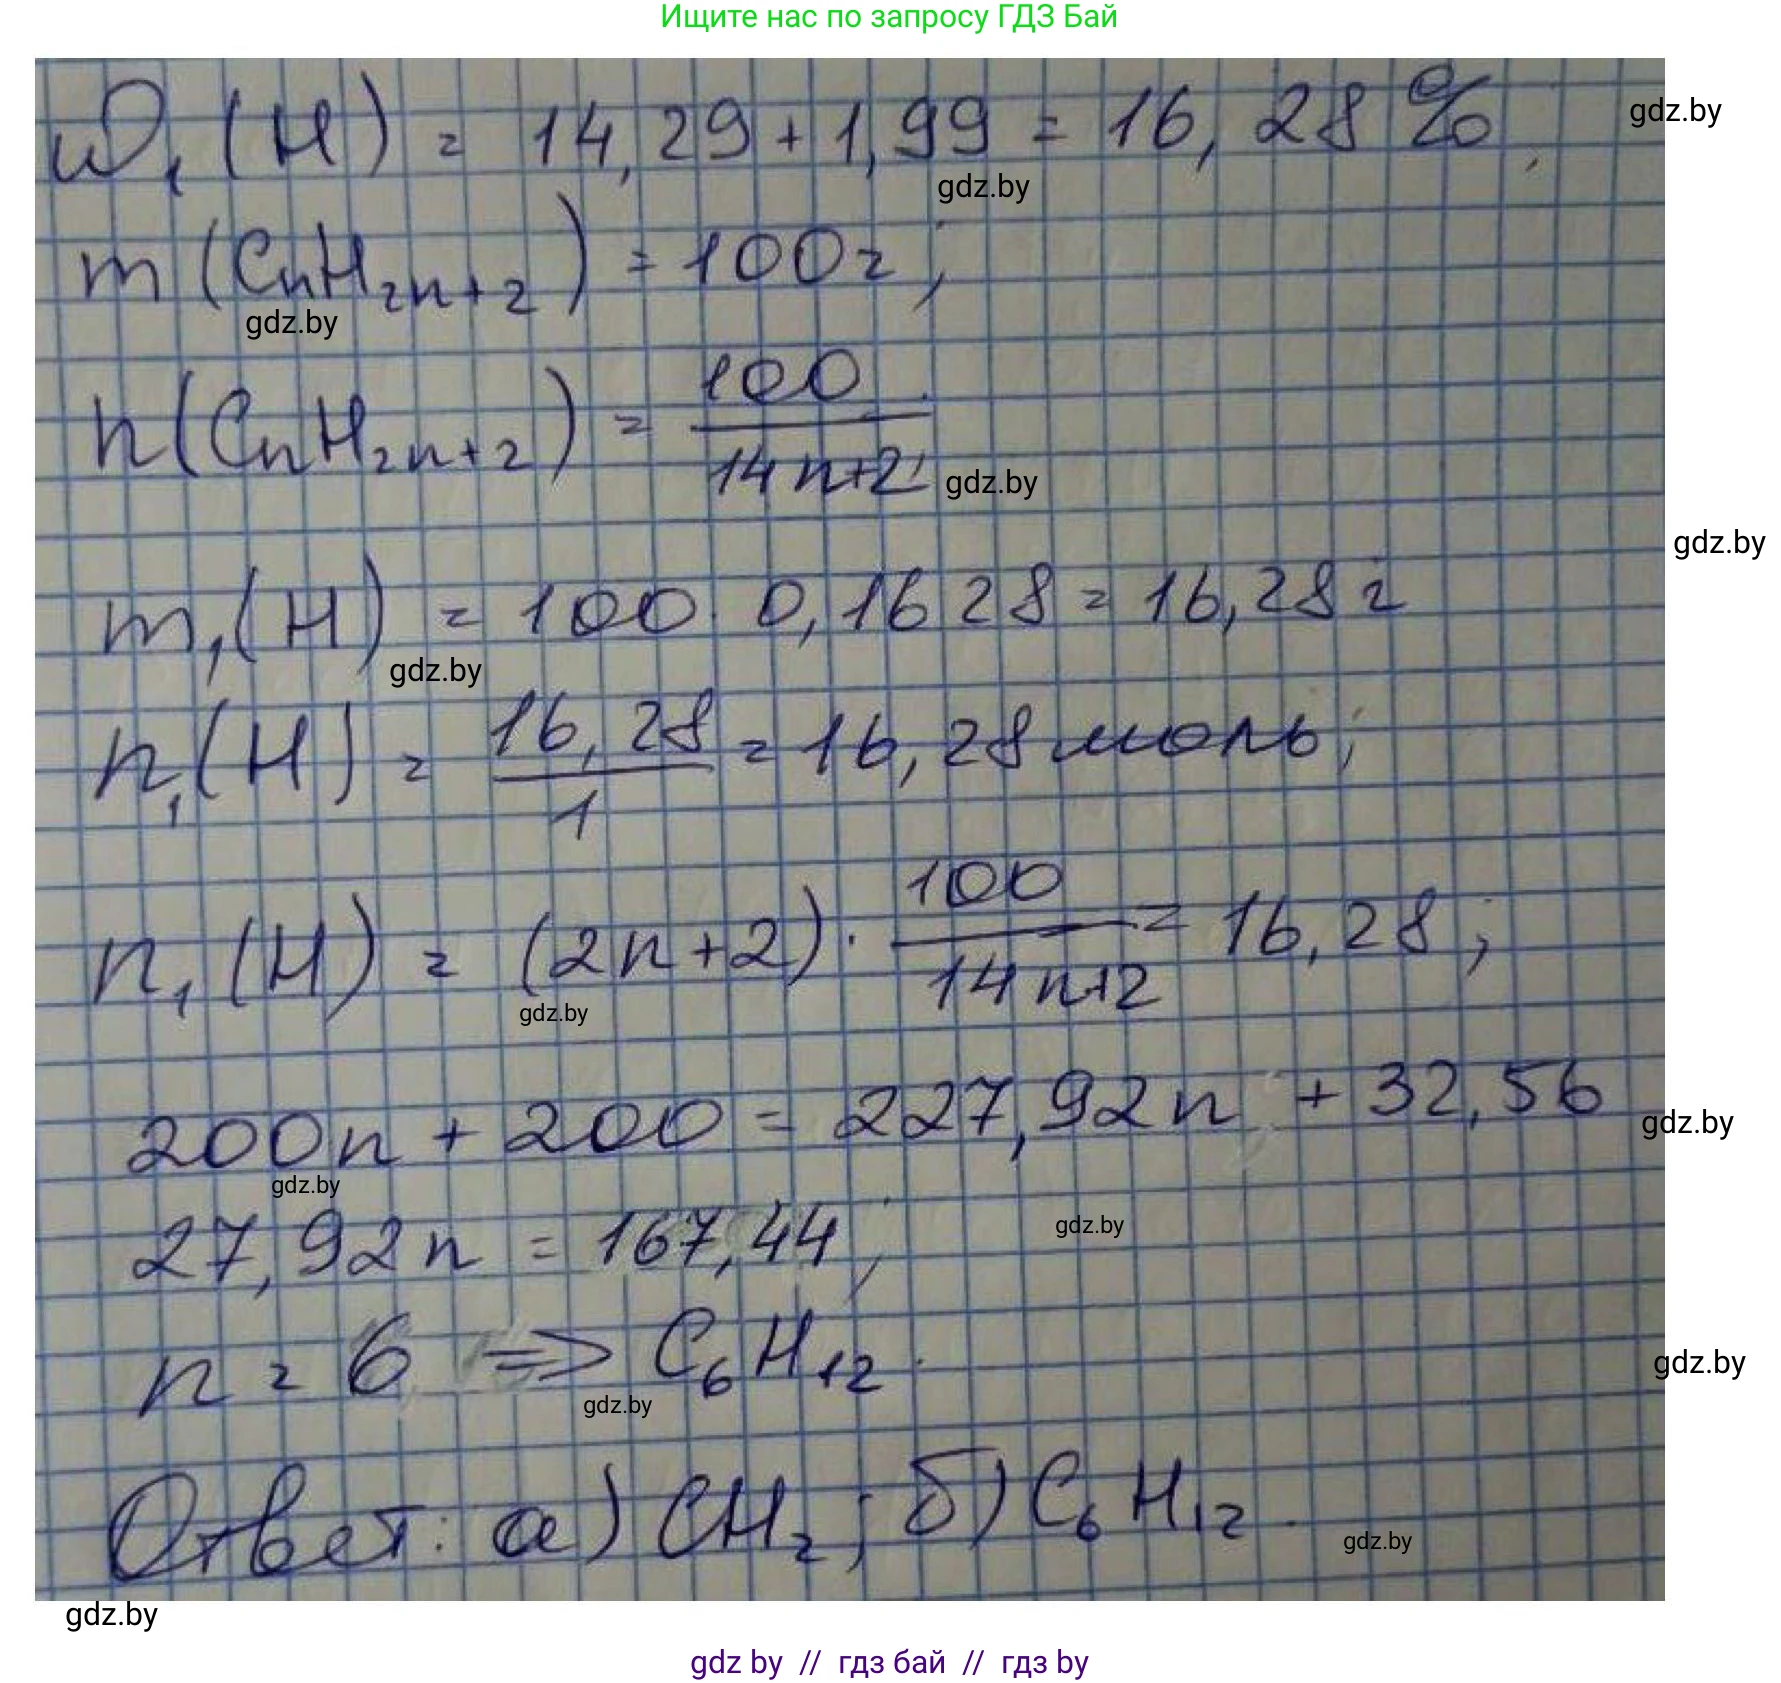 Ищите нас по запросу ГДЗ Бай
w₁(H) = 14,29 + 1,99 = 16,28%,
gdz.by
gdz.by
m(CₙH₂ₙ₊₂) = 100г;
gdz.by
n(CₙH₂ₙ₊₂) = 100/(14n+2);
gdz.by
gdz.by
m₁(H) = 100 · 0,1628 = 16,28г
gdz.by
n₁(H) = 16,28/1 = 16,28 моль;
n₁(H) = (2n+2) · 100/(14n+2) = 16,28;
gdz.by
200n + 200 = 227,92n + 32,56
gdz.by
gdz.by
27,92n = 167,44;
gdz.by
n = 6 => C₆H₁₂.
gdz.by
gdz.by
Ответ: а) CH₂; б) C₆H₁₂.
gdz.by
gdz.by
gdz by // гдз бай // гдз by